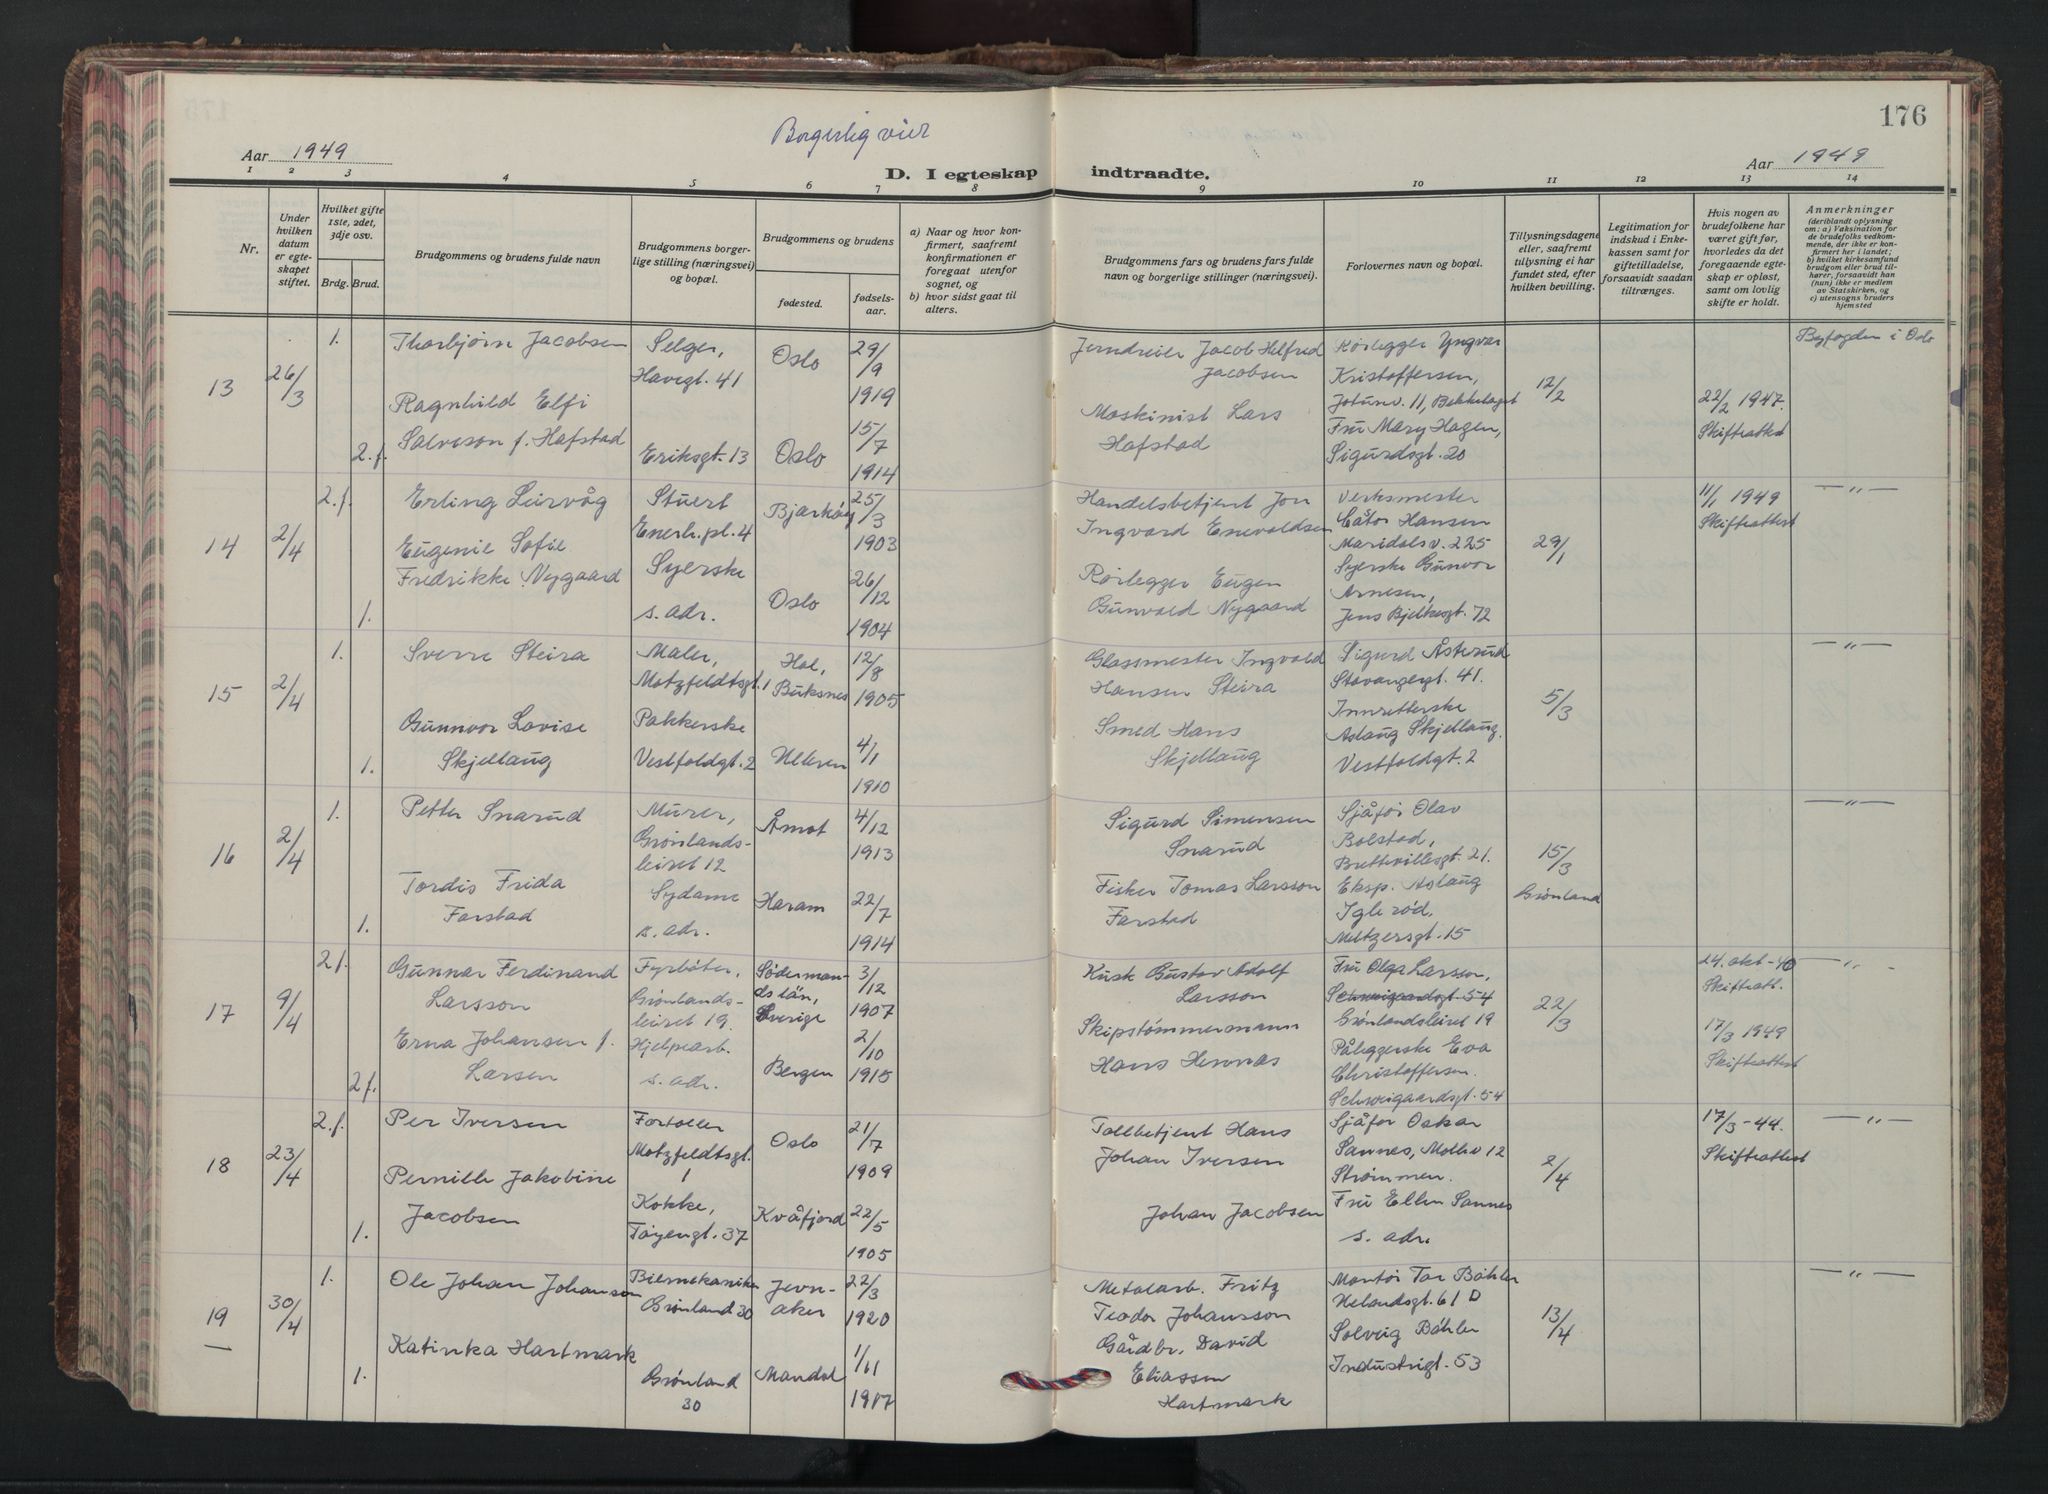 176
Borgerlig viet
Aar 1949
Aar 1949
D. I egteskap indtraadte.
1 2 3 4 5 6 7 8 9 10 11 12 13 14
Nr.
Under hvilken datum er egteskapet stiftet.
Hvilket gifte 1ste, 2det, 3dje osv.
Brdg. Brud.
Brudgommens og brudens fulde navn
Brudgommens borgerlige stilling (næringsvei) og bopæl.
Brudgommens og brudens
fødested.
fødselsaar.
a) Naar og hvor konfirmert, saafremt konfirmationen er foregaat utenfor sognet, og
b) hvor sidst gaat til alters.
Brudgommens fars og brudens fars fulde navn og borgerlige stillinger (næringsvei).
Forlovernes navn og bopæl.
Tillysningsdagene eller, saafremt tillysning ei har fundet sted, efter hvilken bevilling.
Legitimation for indskud i Enkekassen samt for giftetilladelse, forsaavidt saadan tiltrænges.
Hvis nogen av brudefolkene har været gift før, hvorledes da det foregaaende egteskap er opløst, samt om lovlig skifte er holdt.
Anmerkninger (deriblandt oplysning om: a) Vaksination for de brudefolks vedkommende, der ikke er konfirmert her i landet; b) hvilket kirkesamfund brudgom eller brud tilhører, forsaavidt han (hun) ikke er medlem av Statskirken, og c) utensogns bruders hjemsted
13
26/3
1.
Thorbjørn Jacobsen
Selger,
Havegt. 41
Oslo
29/9
1919
Jerndreier Jacob Helfred
Jacobsen
Rørlegger Yngvar
Kristoffersen,
Jotunv. 11, Bekkelaget
12/2
22/2 1947.
Skifteattest
Byfogden i Oslo
2. f.
Ragnhild Elfi
Salveson f. Hafstad
Eriksgt. 13
Oslo
15/7
1914
Maskinist Lars
Hafstad
Fru Mary Hagen,
Sigurdsgt. 20
14
2/4
2. f.
Erling Leirvåg
Stuert
Enerh. pl. 4
Bjarkøy
25/3
1903
Handelsbetjent Jon
Ingvard Enevoldsen
Verksmester
Cåtor Hansen
Maridalsv. 225
29/1
11/1 1949
Skifteattest
— " —
1.
Eugenie Sofie
Fredrikke Nygaard
Syerske
s. adr.
Oslo
26/12
1904
Rørlegger Eugen
Gunvald Nygaard
Syerske Gunvor
Arnesen,
Jens Bjelkesgt. 72
15
2/4
1.
Sverre Steira
Maler,
Motzfeldtsgt. 1
Hol,
Buksnes
12/8
1905
Glassmester Ingvald
Hansen Steira
Sigurd Åsterud
Stavangergt. 41.
5/3
— " —
1.
Gunnvor Lovise
Skjellaug
Pakkerske
Vestfoldgt. 2
4/1
1910
Smed Hans
Skjellaug
Innretterske
Aslaug Skjellaug.
Vestfoldgt. 2
16
2/4
1.
Petter Snarud
Murer,
Grønlands-
leiret 12
Åmot
4/12
1913
Sigurd Simensen
Snarud
Sjåfør Olav
Bolstad,
Brettevillesgt. 21.
15/3
Grønland
— " —
1.
Tordis Frida
Farstad
Sydame
s. adr.
Haram
22/7
1914
Fisker Tomas Larsson
Farstad
Eksp. Aslaug
Iglerød,
Meltzersgt. 15
17
9/4
2 f.
Gunnar Ferdinand
Larsson
Fyrbøter,
Grønlands-
leiret 19.
Söderman-
ds län,
Sverige
3/12
1907
Kusk Gustav Adolf
Larsson
Fru Olga Larsen,
Schweigaardsgt. 54
Grønlandsleiret 19
22/3
24. okt - 40
Skifteatt.
17/3 1949
Skifteattest
— " —
2 f.
Erna Johansen f.
Larsen
Hjelpearb.
s. adr.
Bergen
2/10
1915
Skipstømmermann
Hans Hennas
Påleggerske Eva
Christoffersen.
Schweigaardsgt. 54
18
23/4
2. f.
Per Iversen
Fortoller
Motzfeldtsgt.
1
Oslo
21/7
1909
Tollbetjent Hans
Johan Iversen
Sjåfør Oskar
Sannes, Mollev 12
Strømmen.
2/4
17/3 - 44.
Skifteattest
— " —
1.
Pernille Jakobine
Jacobsen
Kokke,
Tøyengt. 37
Kvæfjord
22/5
1905
Johan Jacobsen
Fru Ellen Sannes
s. adr.
19
30/4
1.
Ole Johan Johanson
Bilmekaniker
Grønland 30
Jevn-
aker
22/3
1920
Metalarb. Fritz
Teodor Johansson
Montør Tor Bøhler
Uelandsgt. 61 D
13/4
— " —
1.
Katinka Hartmark
Grønland
30
Mandal
1/11
1917
Gårdbr. David
Eliassen
Hartmark
Solveig Bøhler
Industrigt. 53